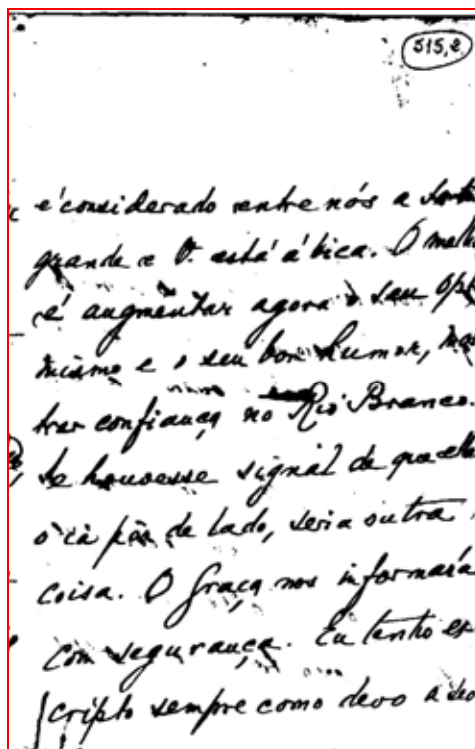 515,2
é considerado entre nós a sorte
grande e V. está á bica. O melh
é augmentar agora o seu opti
mismo e o seu bom humor, mos
trar confiança no Rio Branco.
Se houvesse signal de que elle
o ia pôr de lado, seria outra
coisa. O Graça nos informará
com segurança. Eu tenho es
cripto sempre como devo a seo